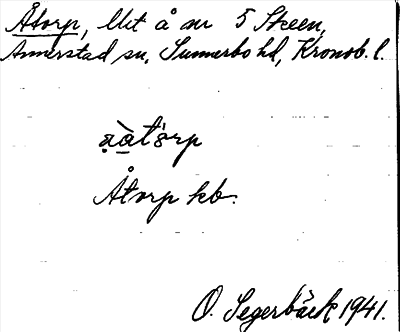 Åtorp, Utt å nr 5 Skeen,
Annerstad sn, Sunnerbo hd, Kronob. l.
Åtorp kb.
O. Segerbäck 1941.